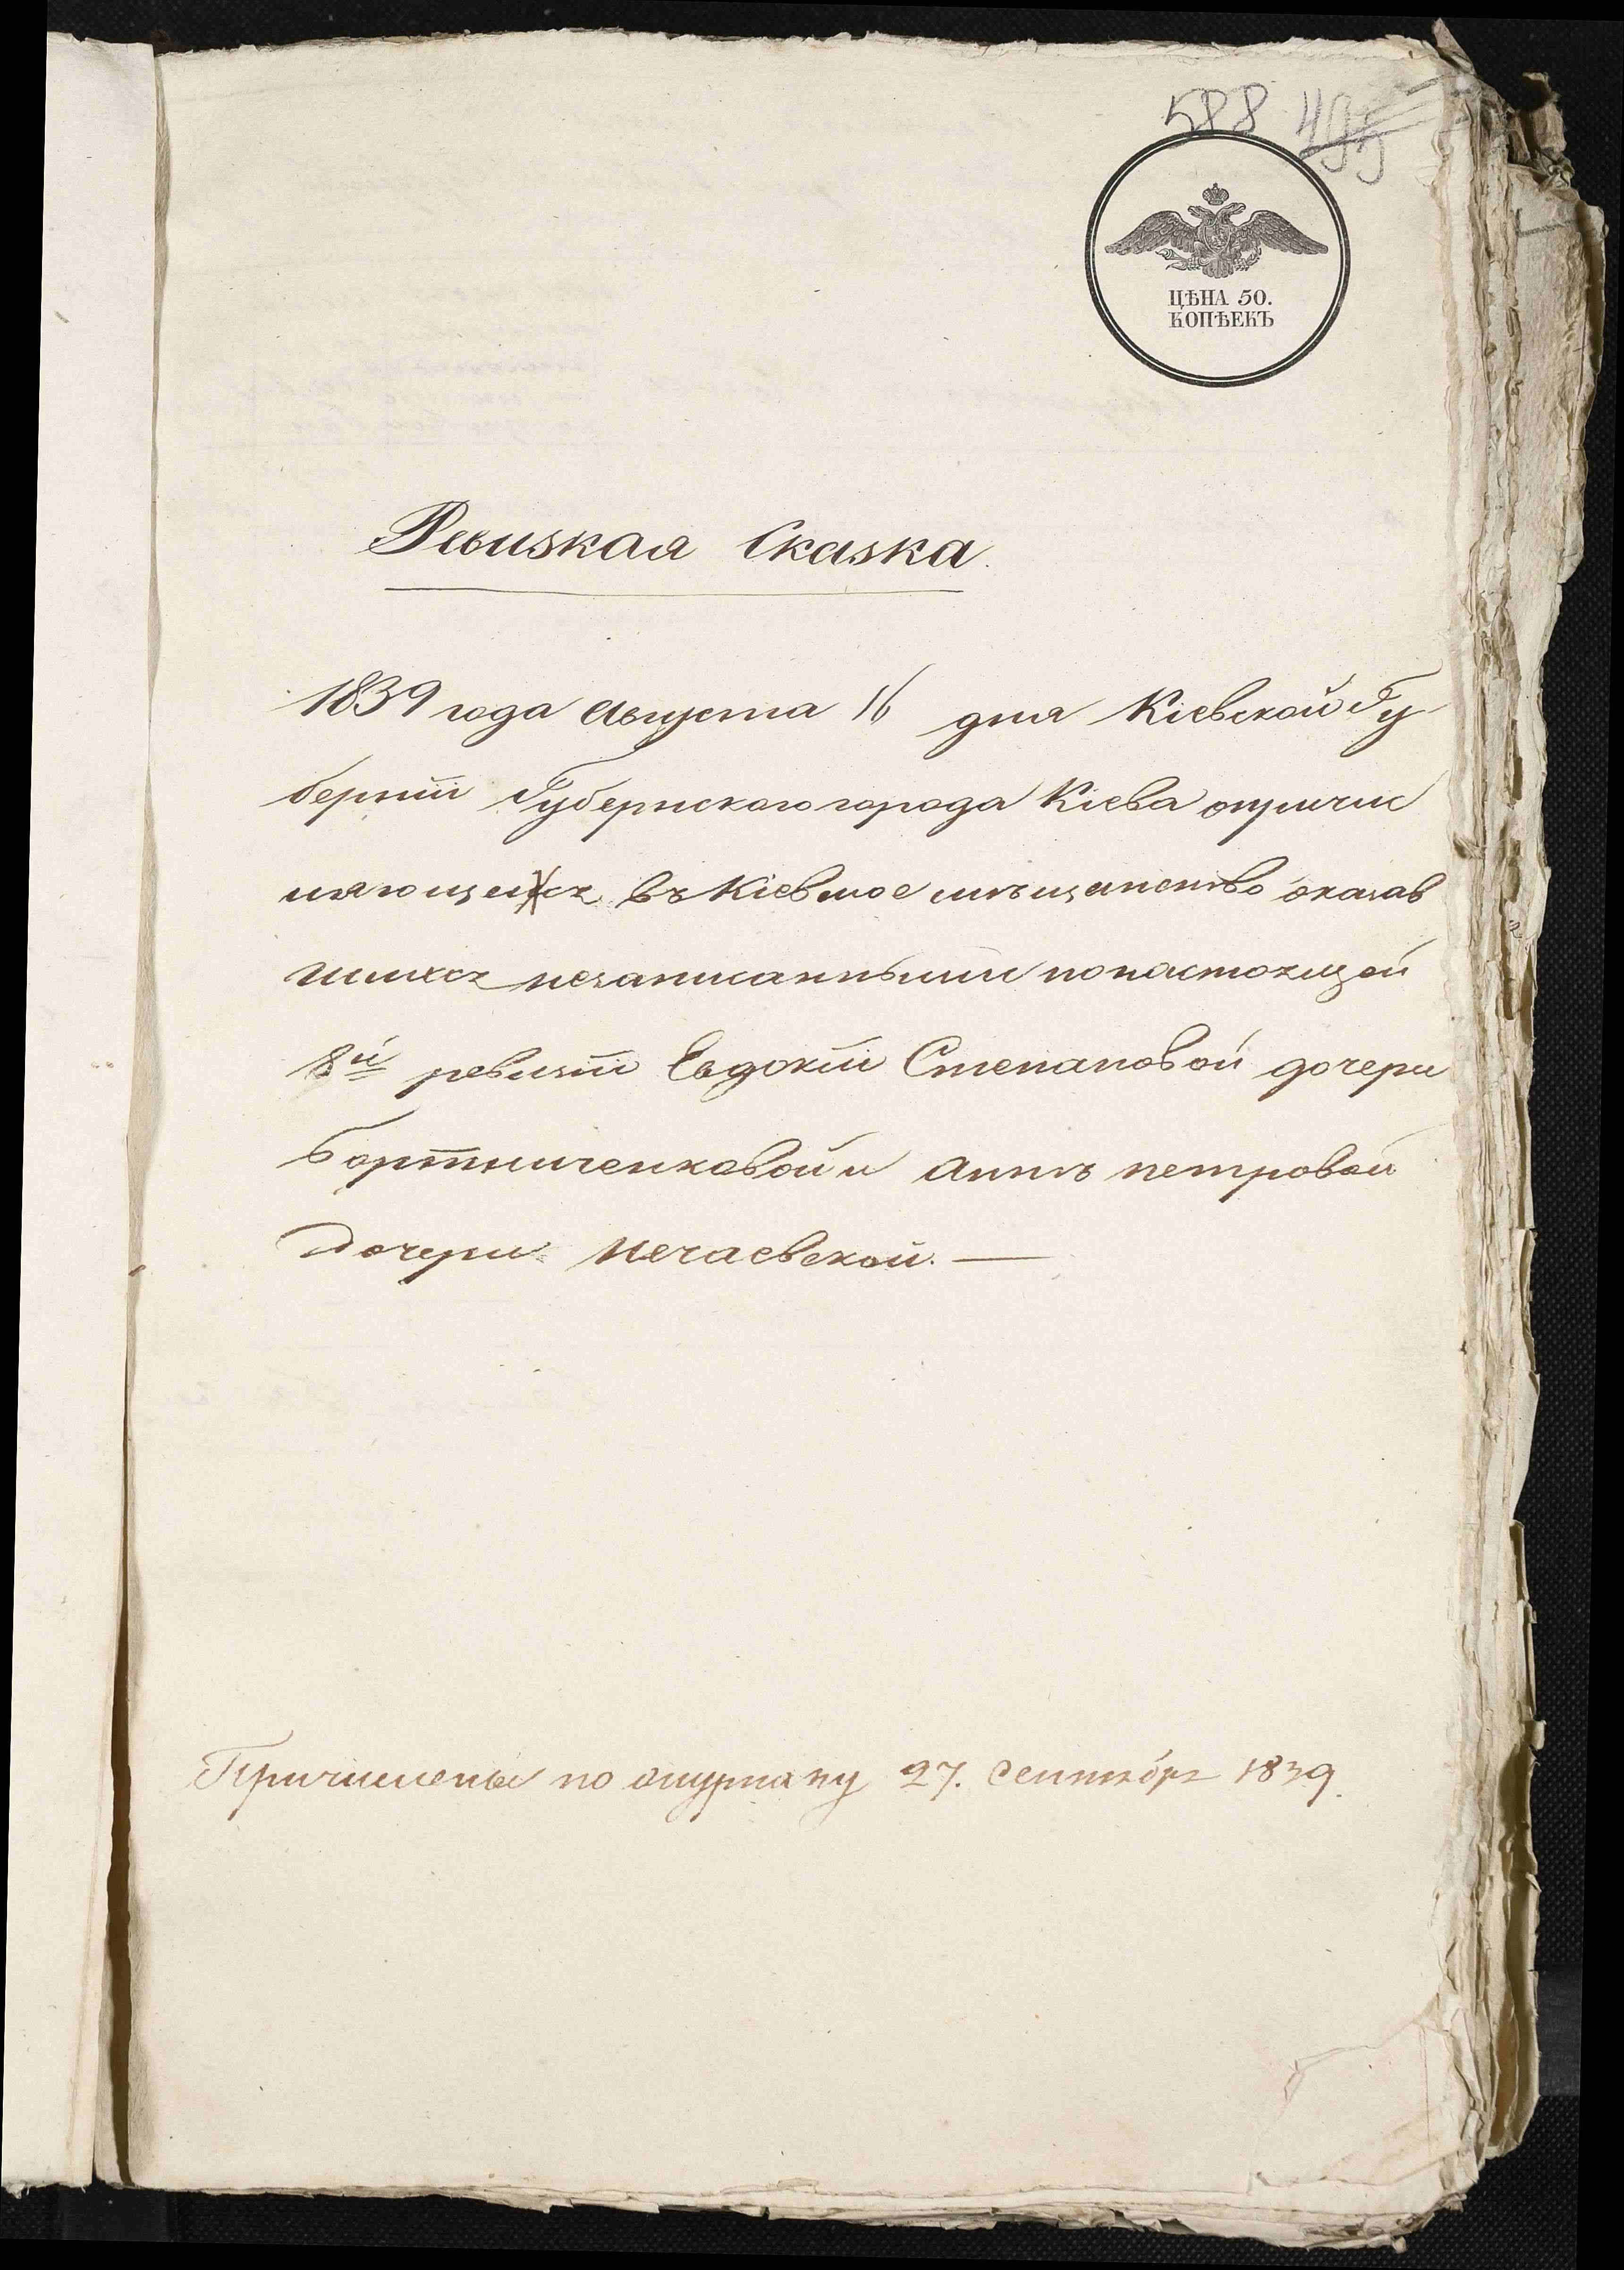 588 495
ЦѢНА 50.
КОПѢЕКЪ
Ревизкая Сказка.
1839 года Августа 16 дня Кіевской Гу
берніи Губернского города Кіева опричис
ляющихся въ Кіевское мѣщанство оказав
шихся незаписанными по настоящей
8й ревизіи Евдокіи Степановой дочери
Бортниченковой и Аннѣ Петровой
Дочери Нечаевской. —
Причислены по журналу 27. Сентября 1839.